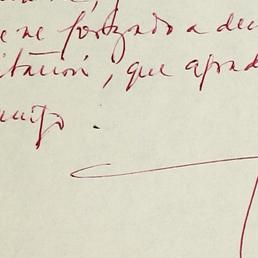 e ne forzado a dec
itación, que agrad
amigo.